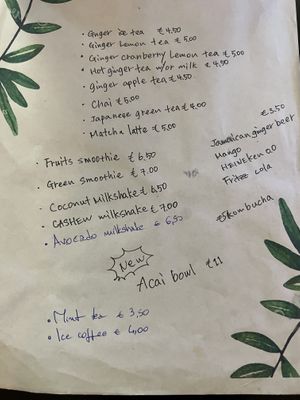 · Ginger ice tea € 4,50
· Ginger Lemon tea € 5,00
· Ginger cranberry Lemon tea € 5,00
· Hot ginger tea w/or milk € 4,50
· ginger apple tea € 4,50
· Chai € 5,00
· Japanese green tea € 4,00
· Matcha latte € 5,00
· Fruits smoothie € 6,50
· Green Smoothie € 7,00
· Coconut Milkshake € 6,50
· CASHEW milkshake € 7,00
· Avocado milkshake € 6,50
€3,50
Jamaican ginger beer
Mango
Heineken 0.0
Fritz cola
€5 kombucha
New
Acai bowl €11
· Mint tea € 3,50
· Ice coffee € 4,00